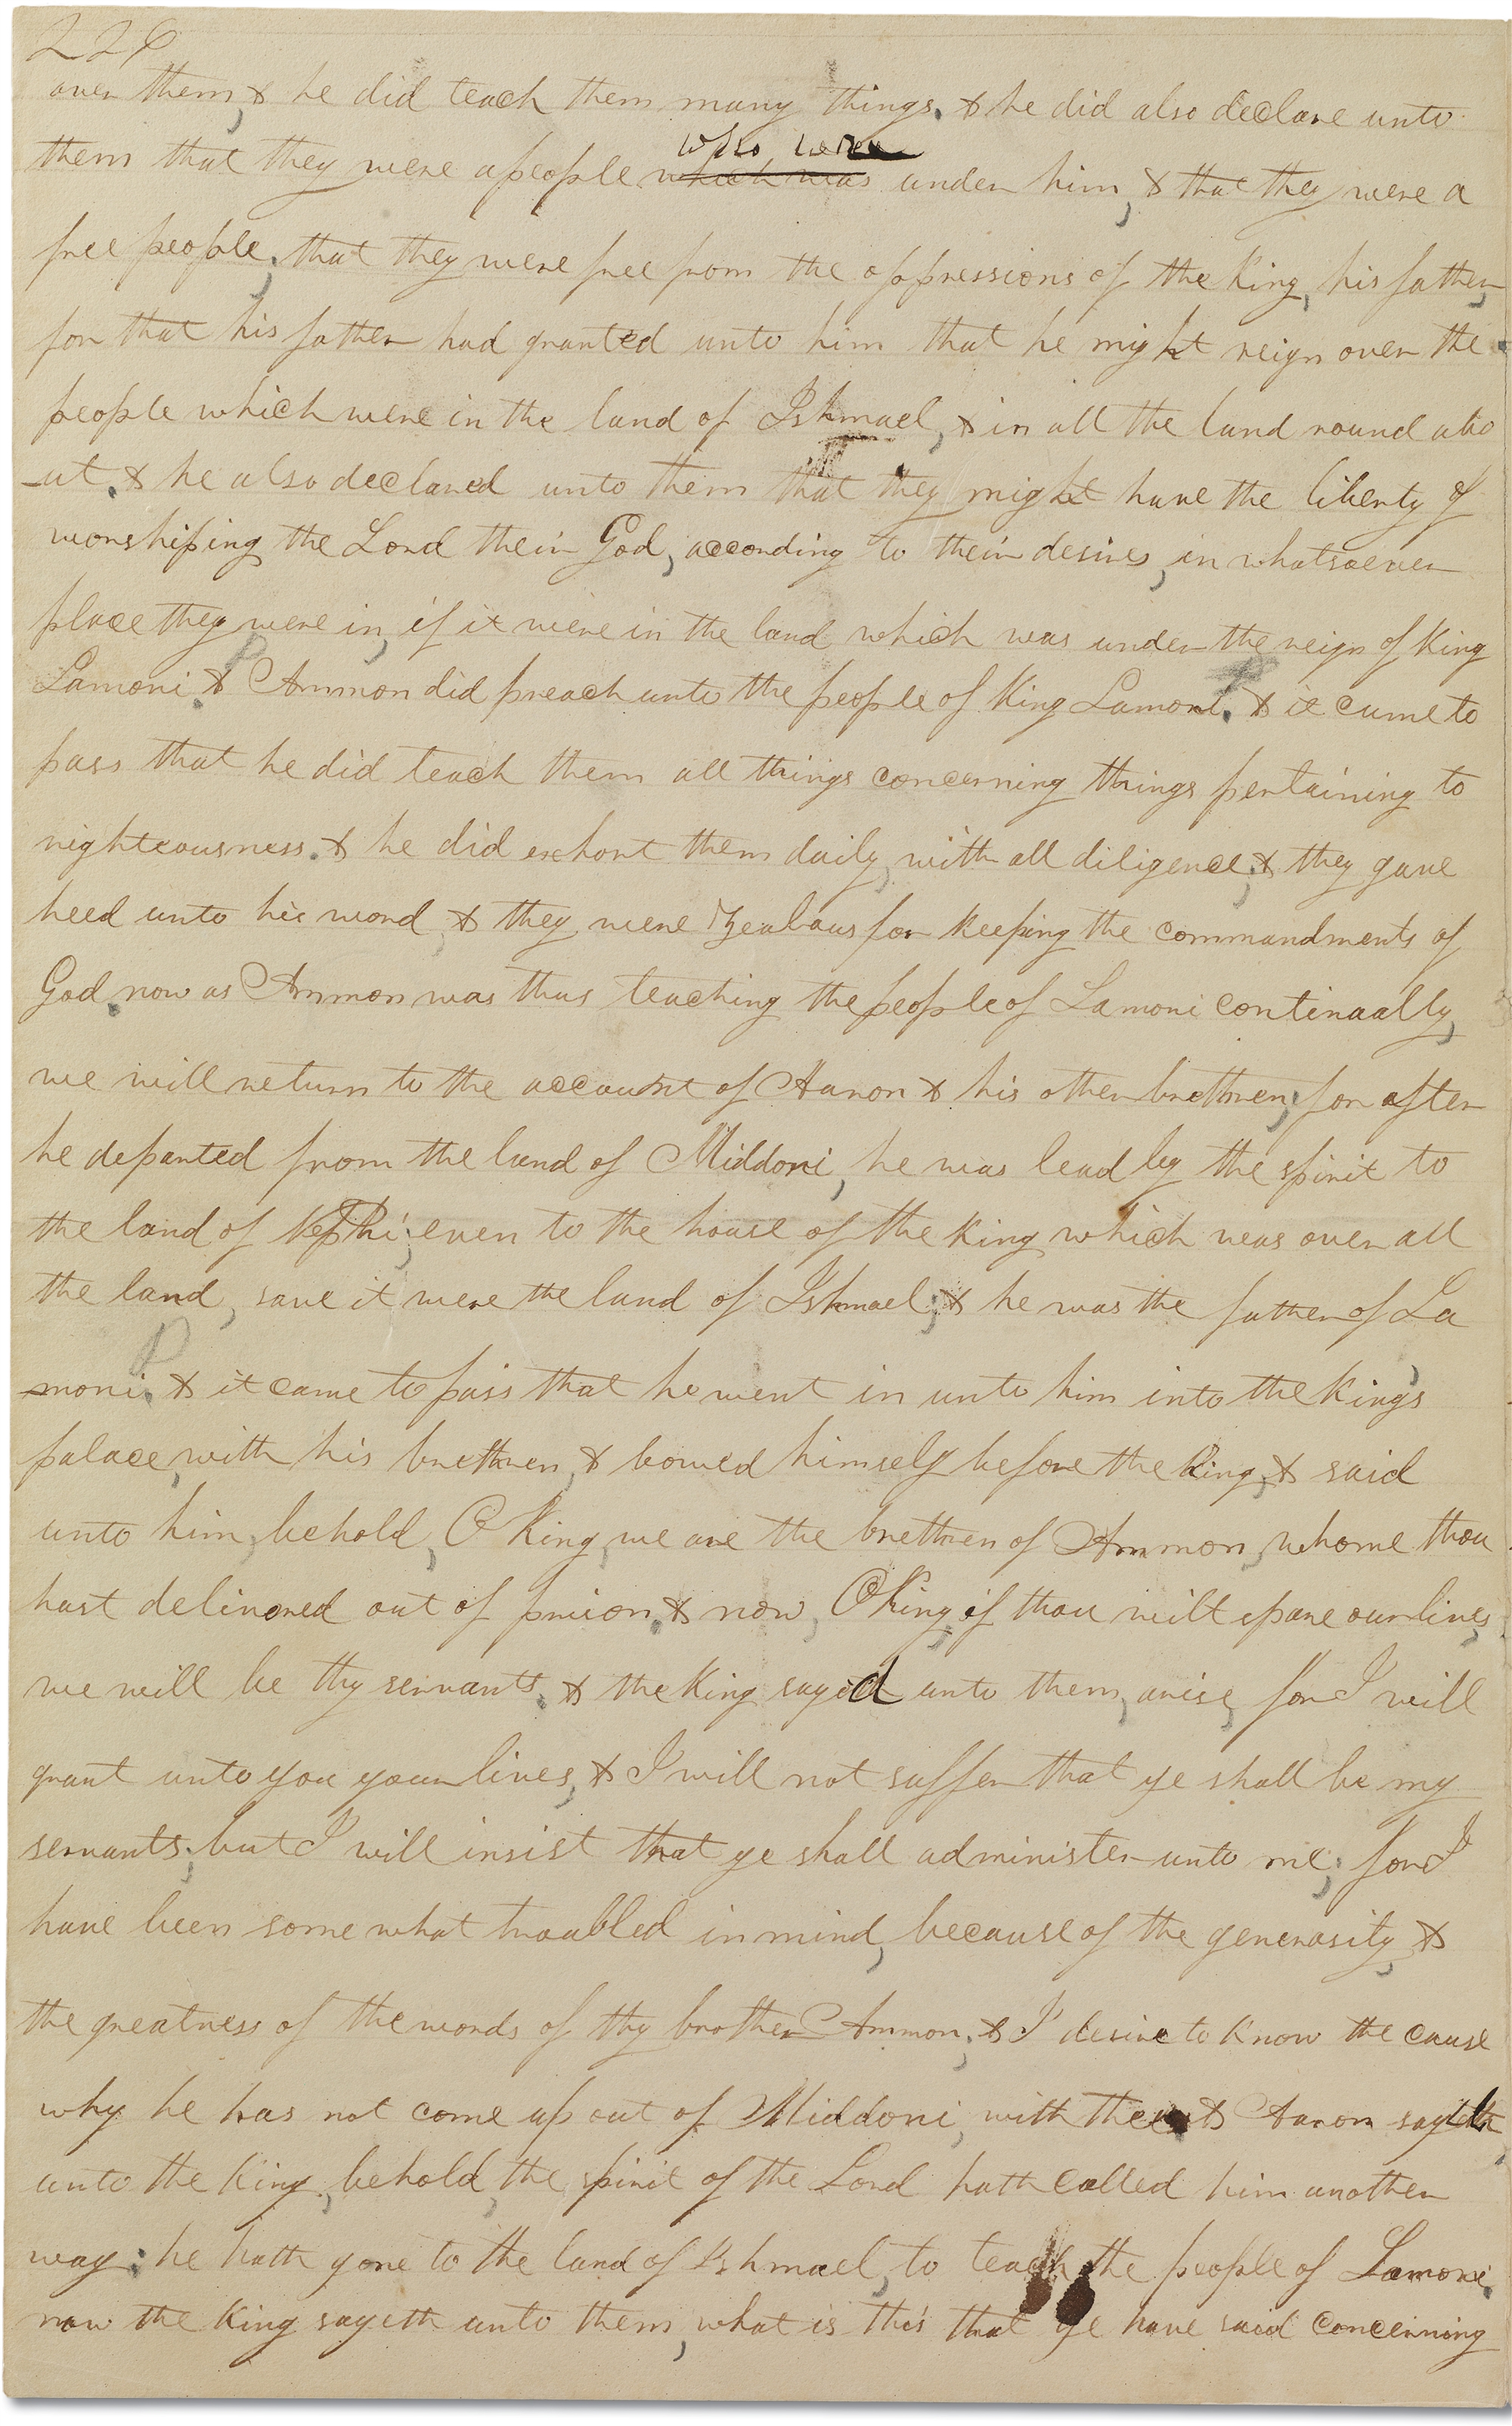 226
over them, & he did teach them many things. & he did also declare unto
who were
them that they were a people which was under him, & that they were a
free people, that they were free from the oppressions of the king, his father,
for that his father had granted unto him that he might reign over the
people which were in the land of Ishmael, & in all the land round abo
-ut. & he also declared unto them that they might have the liberty of
worshiping the Lord their God, according to their desires, in whatsoever
place they were in, if it were in the land which was under the reign of king
Lamoni. & Ammon did preach unto the people of king Lamoni. & it came to
pass that he did teach them all things concerning things pertaining to
righteousness. & he did exhort them daily, with all diligence, & they gave
heed unto his word, & they were zealous for keeping the commandments of
God. now as Ammon was thus teaching the people of Lamoni continually,
we will return to the account of Aaron & his other brethren; for after
he departed from the land of Middoni, he was lead by the spirit to
the land of Nephi; even to the house of the king which was over all
the land, save it were the land of Ishmael; & he was the father of La
-moni. & it came to pass that he went in unto him into the king's
palace, with his brethren, & bowed himself before the king, & said
unto him, behold, O king, we are the brethren of Ammon, whome thou
hast delivered out of prison. & now, O king, if thou wilt spare our lives,
we will be thy servants. & the king sayed unto them, arise, for I will
grant unto you your lives, & I will not suffer that ye shall be my
servants; but I will insist that ye shall administer unto me; for I
have been some what troubled in mind, because of the generosity, &
the greatness of the words of thy brother Ammon; & I desire to know the cause
why he has not come up out of Middoni, with thee & Aaron sayeth
unto the king, behold, the spirit of the Lord hath called him another
way; he hath gone to the land of Ishmael, to teach the people of Lamoni.
now the king sayeth unto them, what is this that ye have said concerning